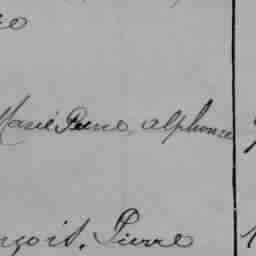 Marie Pierre, alphonse
nçois, Pierre